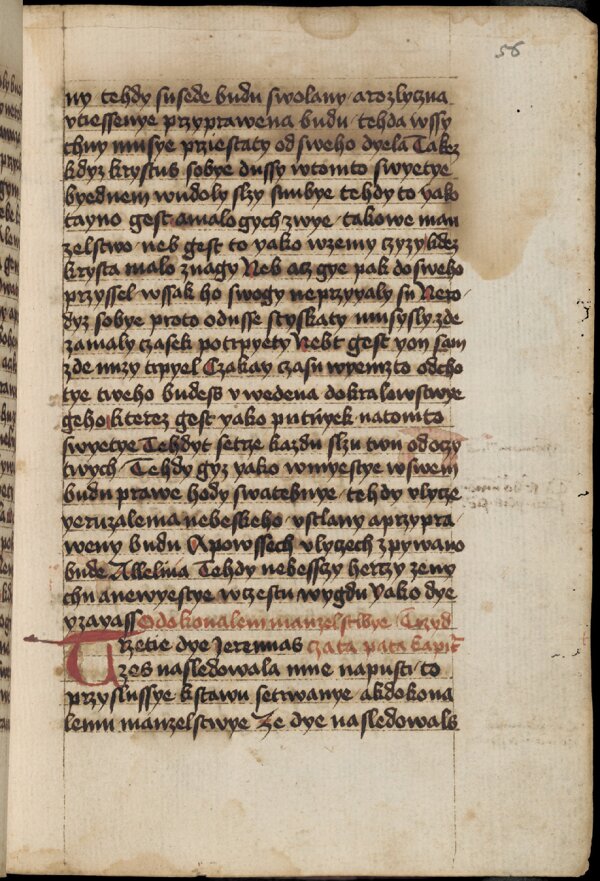 56
ny tehdy susede budu swolany a rozlyczna
vtiessenye przyprawena budu tehda wssy
chny musye prziestaty od sweho dyela Takez
kdyz krystus sobye dussy w tomto swyetye
byednem w udoly slzy snubye tehdy to yako
tayno gest a malo gych zwye takowe man
zelstwo neb gest to yako w zemy czyzy kdez
krysta malo znagy Neb acz gye pak do sweho
przyssel wssak ho swogy neprzyyaly su Nero
dyz sobye proto o dusse styskaty musysly zde
za maly czasek potrpyety Nebt gest yon sam
zde mzy trpyel Czakay czasu w yemzto odcho
tye tweho budess vwedena do kralowstwye
geho kterez gest yako putnyek na tomto
swyetye Tehdyt setrze kazdu slzu twu od oczy
twych Tehdy gyz yako w myestye w swem
budu prawe hody swatebnye tehdy vlycze
yeruzalema nebeskeho vstlany a przypra
weny budu A po wssech vlyczech zpywano
bude Allelvia Tehdy nebesszy herczy zeny
chu a newyestye w czestu wygdu Yako dye
yzayass O dokonalem manzelstwye Trzyd
Trzetie dye Jeremias czata pata kapit
zes nasledowala mne na pusti to
przyslussye k stawu setrwanye a k dokona
lemu manzelstwye Ze dye nasledowals